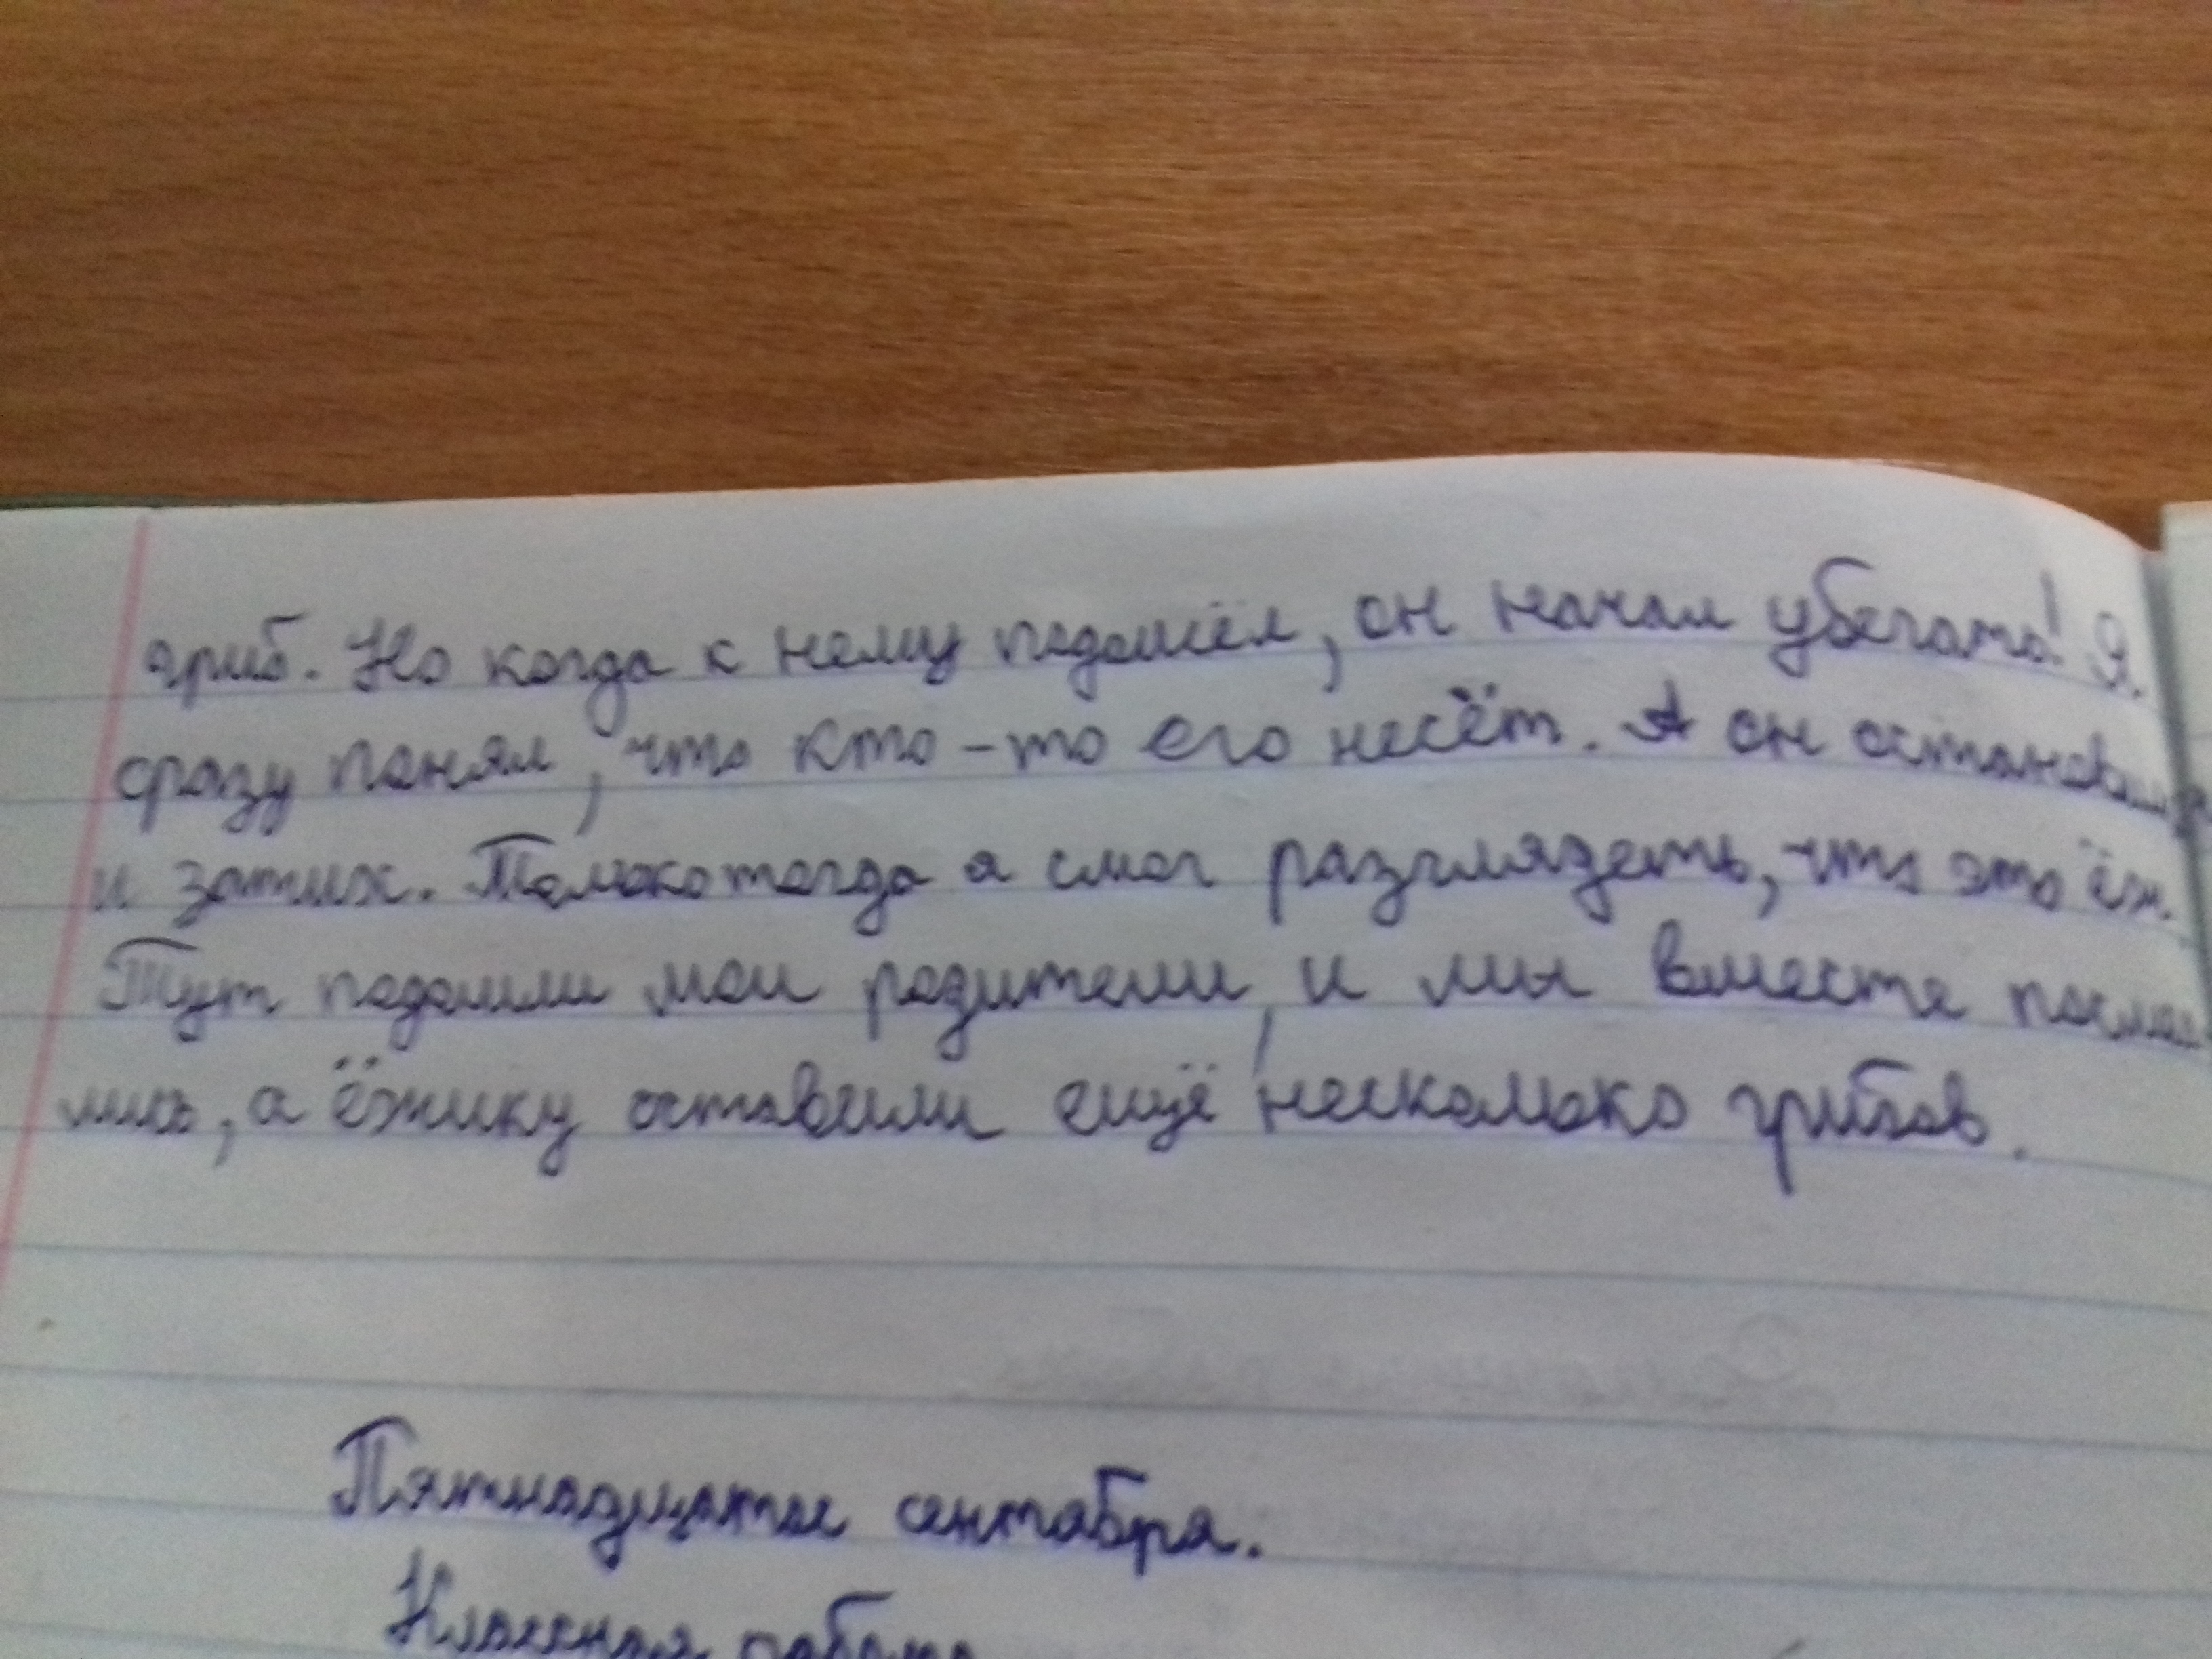 гриб. Но когда к нему подошёл, он начал убегать! Я
сразу понял, что кто-то его несёт. А он остановился
и затих. Только тогда я смог разглядеть, что это ёж.
Тут подошли мои родители, и мы вместе посмея-
лись, а ёжику оставили ещё несколько грибов.
Пятнадцатое сентября.
Классная работа